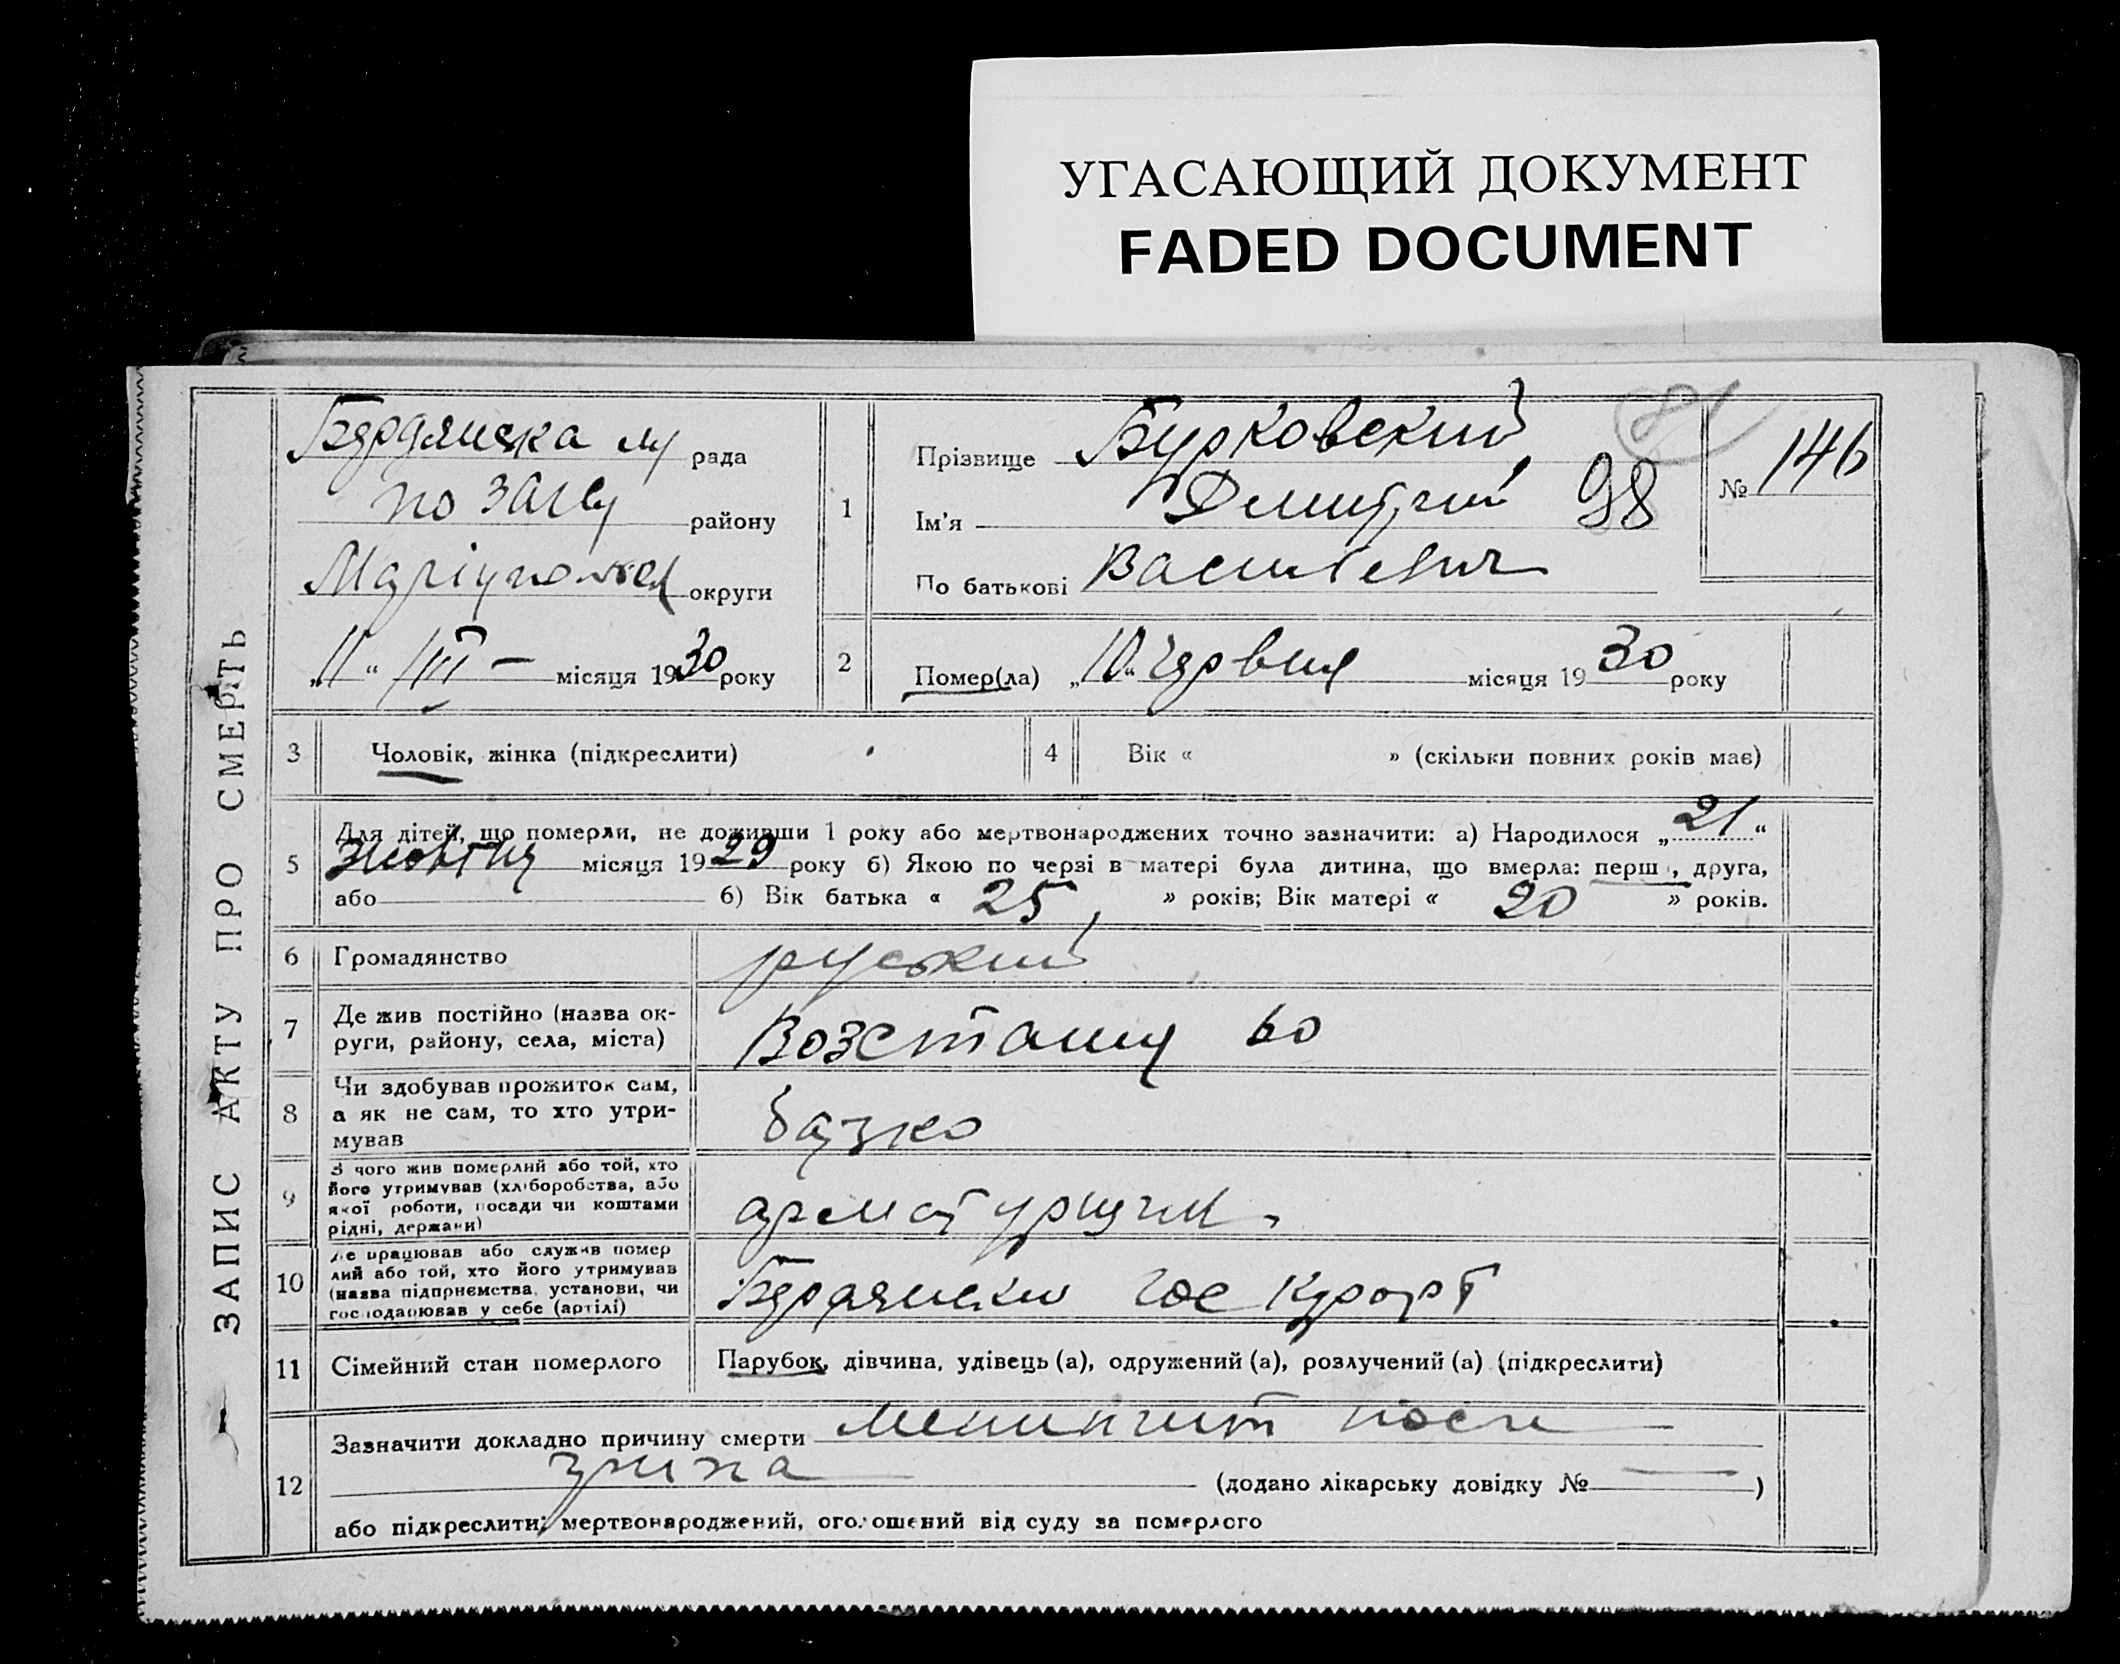 УГАСАЮЩИЙ ДОКУМЕНТ
FADED DOCUMENT
ЗАПИС АКТУ ПРО СМЕРТЬ
Бердянська м/ рада
по загсу району
Маріупольск округи
„11“ VI – місяця 1930 року
1
Прізвище Бурковский
Ім'я Дмитрий 98
По батькові Васильевич
81
№ 146
2
Помер(ла) „10“ червня місяця 1930 року
3 Чоловік, жінка (підкреслити)
4 Вік « » (скільки повних років має)
5 Для дітей, що померли, не доживши 1 року або мертвонароджених точно зазначити: а) Народилося „21“
жовтня місяця 1929 року б) Якою по черзі в матері була дитина, що вмерла: перш , друга,
або б) Вік батька « 25 » років; Вік матері « 20 » років.
6 Громадянство руський
7 Де жив постійно (назва ок-
руги, району, села, міста) Возстания 60
8 Чи здобував прожиток сам,
а як не сам, то хто утри-
мував батько
9 З чого жив померлий або той, хто
його утримував (хліборобства, або
якої роботи, посади чи коштами
рідні, держави) арматурщик
10 Де працював або служив помер
лий або той, хто його утримував
(назва підприємства, установи, чи
господарював у себе (артілі) Бердянский Гос Курорт
11 Сімейний стан померлого Парубок, дівчина, удівець (а), одружений (а), розлучений (а) (підкреслити)
12 Зазначити докладно причину смерти менингит после
грипа (додано лікарську довідку № — )
або підкреслити; мертвонароджений, оголошений від суду за померлого